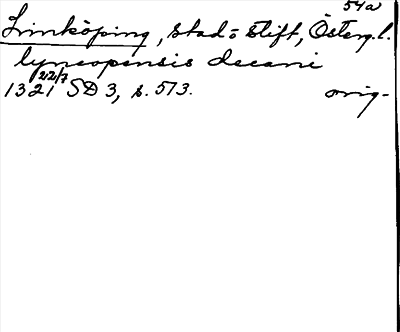 54a
Linköping, stad o stift, Österg. l.
lyncopensis decani
22/7
1321 SD 3, s. 573.   orig-